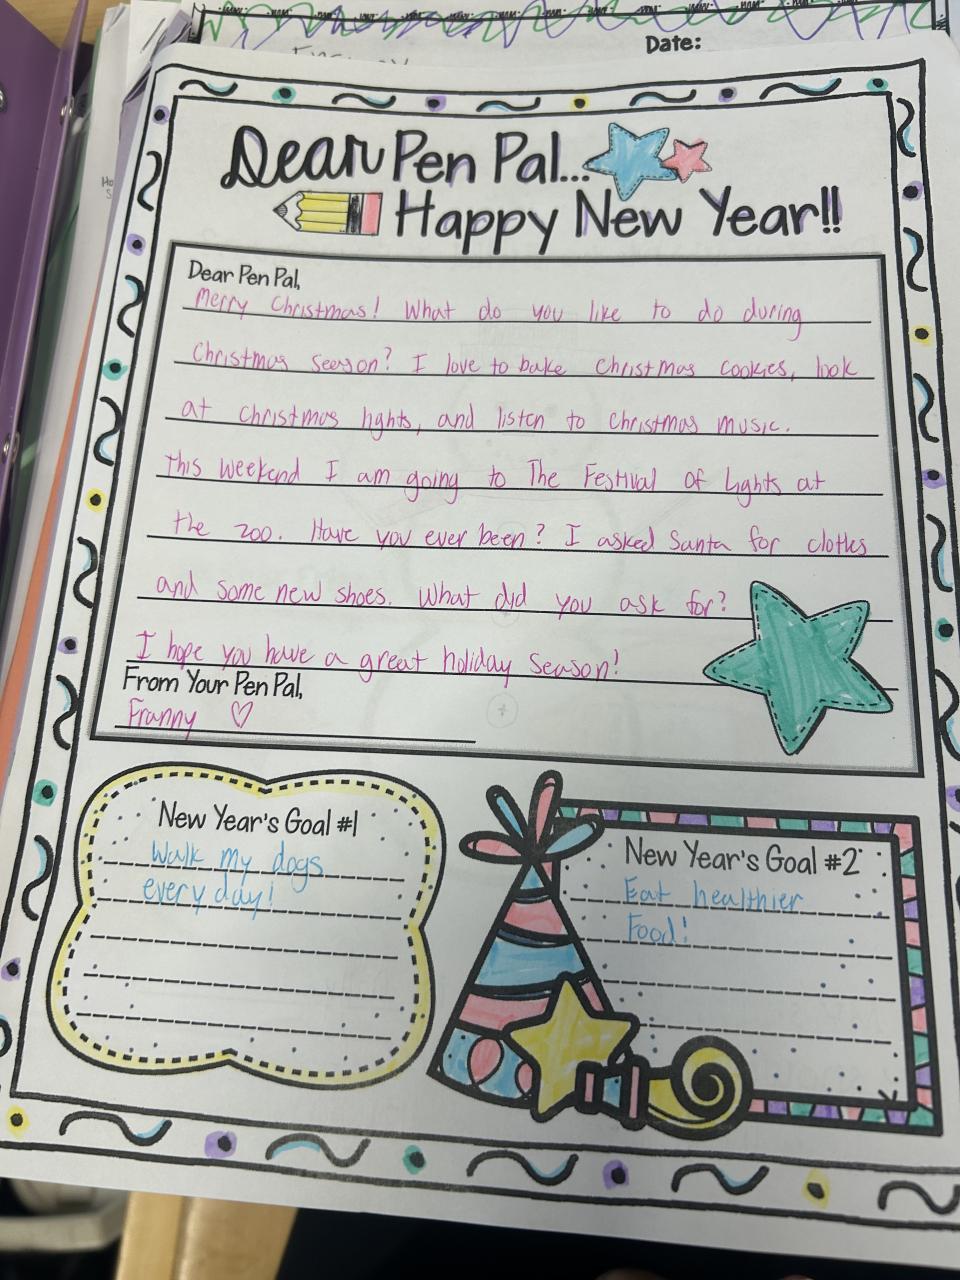 Date:
Dear Pen Pal...
Happy New Year!!
Dear Pen Pal,
Merry Christmas! What do you like to do during
Christmas season? I love to bake Christmas cookies, look
at christmas lights, and listen to Christmas music.
This weekend I am going to The Festival of Lights at
the zoo. Have you ever been? I asked Santa for clothes
and some new shoes. What did you ask for?
I hope you have a great holiday season!
From Your Pen Pal,
Franny ♡
New Year's Goal #1
Walk my dogs
every day!
New Year's Goal #2
Eat healthier
Food!